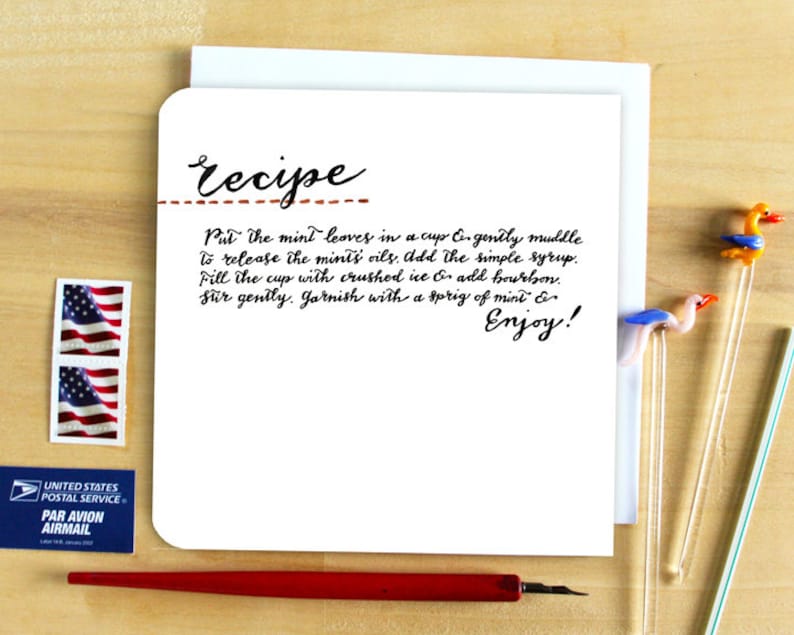 recipe
Put the mint leaves in a cup & gently muddle
to release the mints' oils. Add the simple syrup.
Fill the cup with crushed ice & add bourbon.
Stir gently. Garnish with a sprig of mint &
Enjoy!
UNITED STATES
POSTAL SERVICE®
PAR AVION
AIRMAIL